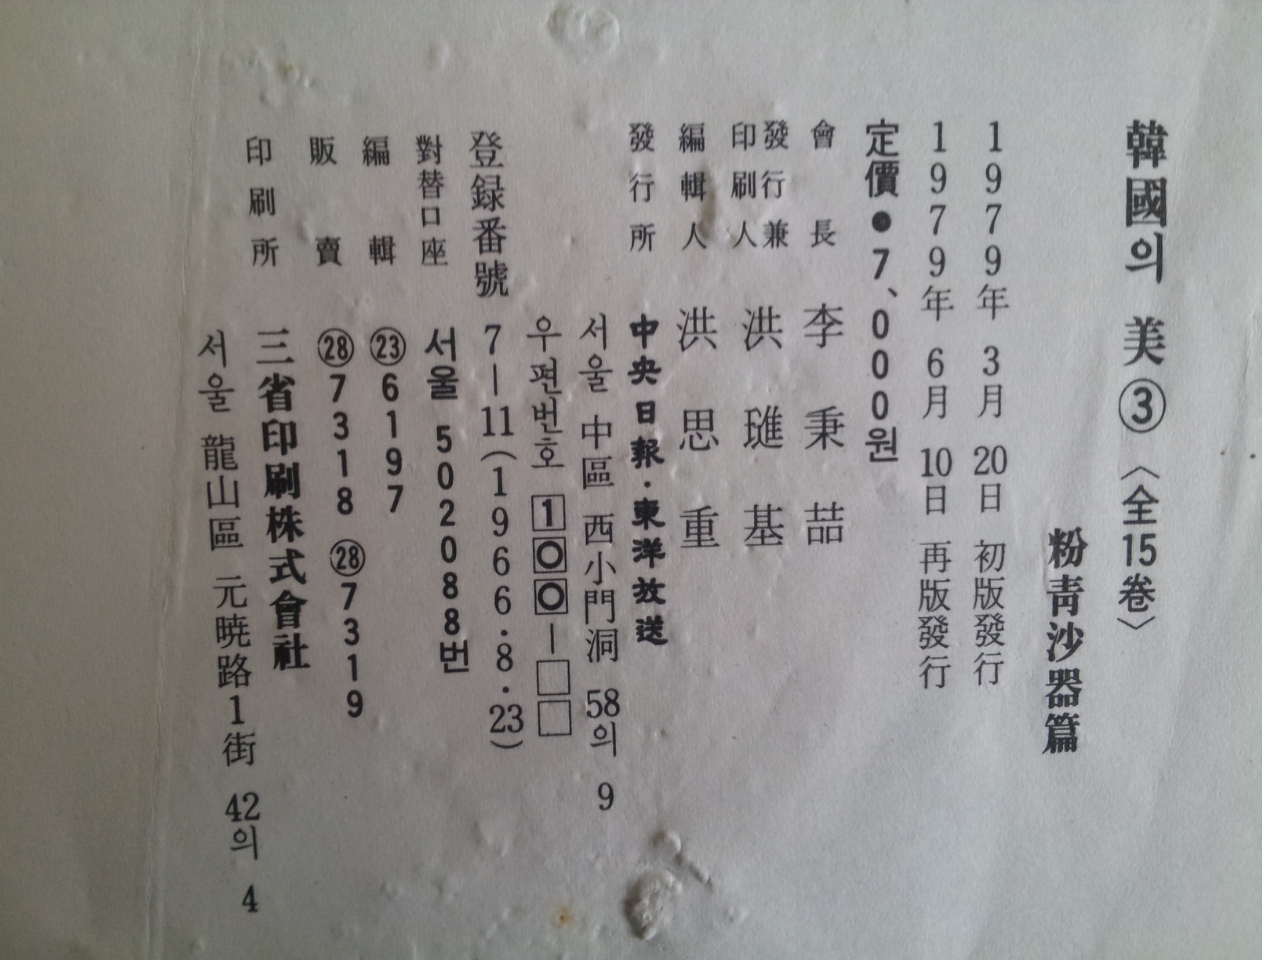 韓國의 美 ③ 〈全15卷〉
粉靑沙器篇
1979年 3月 20日 初版發行
1979年 6月 10日 再版發行
定價●7、000원
會長 李秉喆
發行兼印刷人 洪璡基
編輯人 洪思重
發行所 中央日報·東洋放送
서울 中區 西小門洞 58의 9
우편번호 100-□□
登録番號 7-11(1966·8·23)
對替口座 서울 502088번
編輯 ㉓6197
販賣 ㉘7318 ㉘7319
印刷所 三省印刷株式會社
서울 龍山區 元曉路1街 42의 4